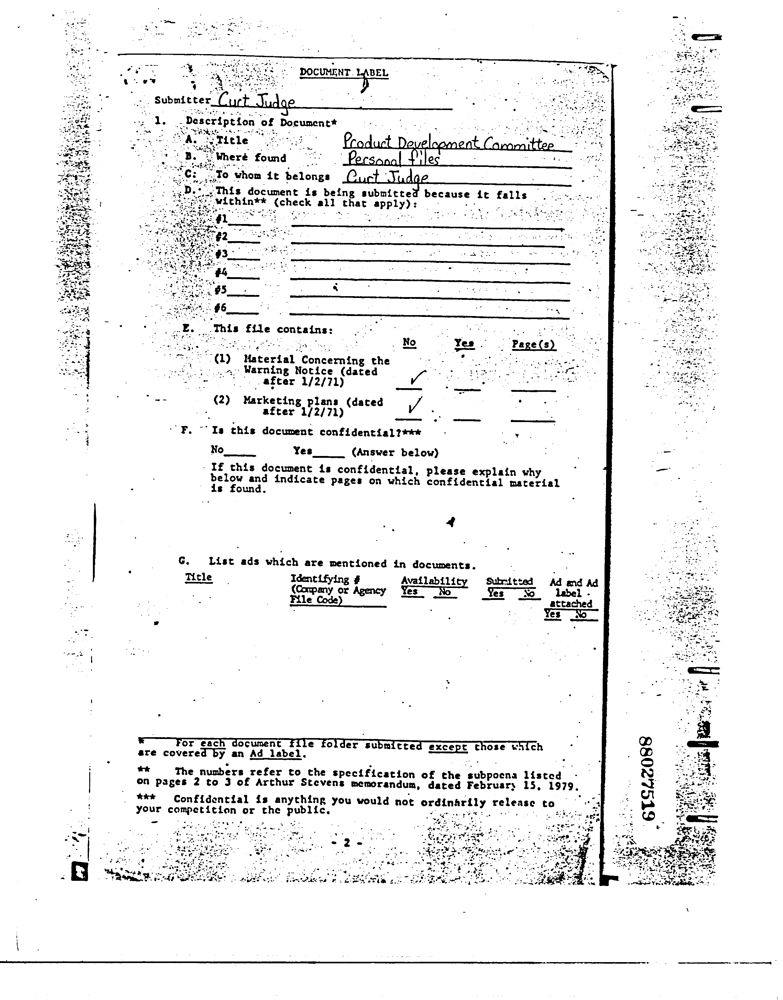 DOCUMENT LABEL
Submitter Curt Judge
1. Description of Document*
A. Title Product Development Committee
B. Where found Personal files
C: To whom it belongs Curt Judge
D. This document is being submitted because it falls
within** (check all that apply):
#1
#2
#3
#4
#5
#6
E. This file contains:
No Yes Page(s)
(1) Material Concerning the
Warning Notice (dated
after 1/2/71) ✓
(2) Marketing plans (dated
after 1/2/71) ✓
F. Is this document confidential?***
No____ Yes____ (Answer below)
If this document is confidential, please explain why
below and indicate pages on which confidential material
is found.
G. List ads which are mentioned in documents.
Title Identifying # Availability Submitted Ad and Ad
(Company or Agency Yes No Yes No label
File Code) attached
Yes No
* For each document file folder submitted except those which
are covered by an Ad label.
** The numbers refer to the specification of the subpoena listed
on pages 2 to 3 of Arthur Stevens memorandum, dated February 15, 1979.
*** Confidential is anything you would not ordinarily release to
your competition or the public.
- 2 -
88027519